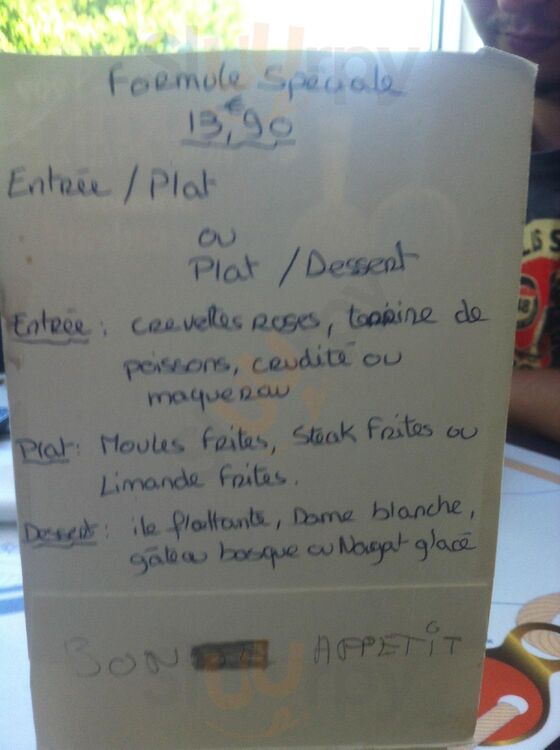 Formule Speciale
13,€90
Entrée / Plat
ou
Plat / Dessert
Entrée : crevettes roses, terrine de
poissons, crudité ou
maquereau
Plat : Moules frites, Steak Frites ou
Limande frites.
Dessert : ile flottante, Dame blanche,
gâteau basque ou Nougat glacé
BON APPETIT